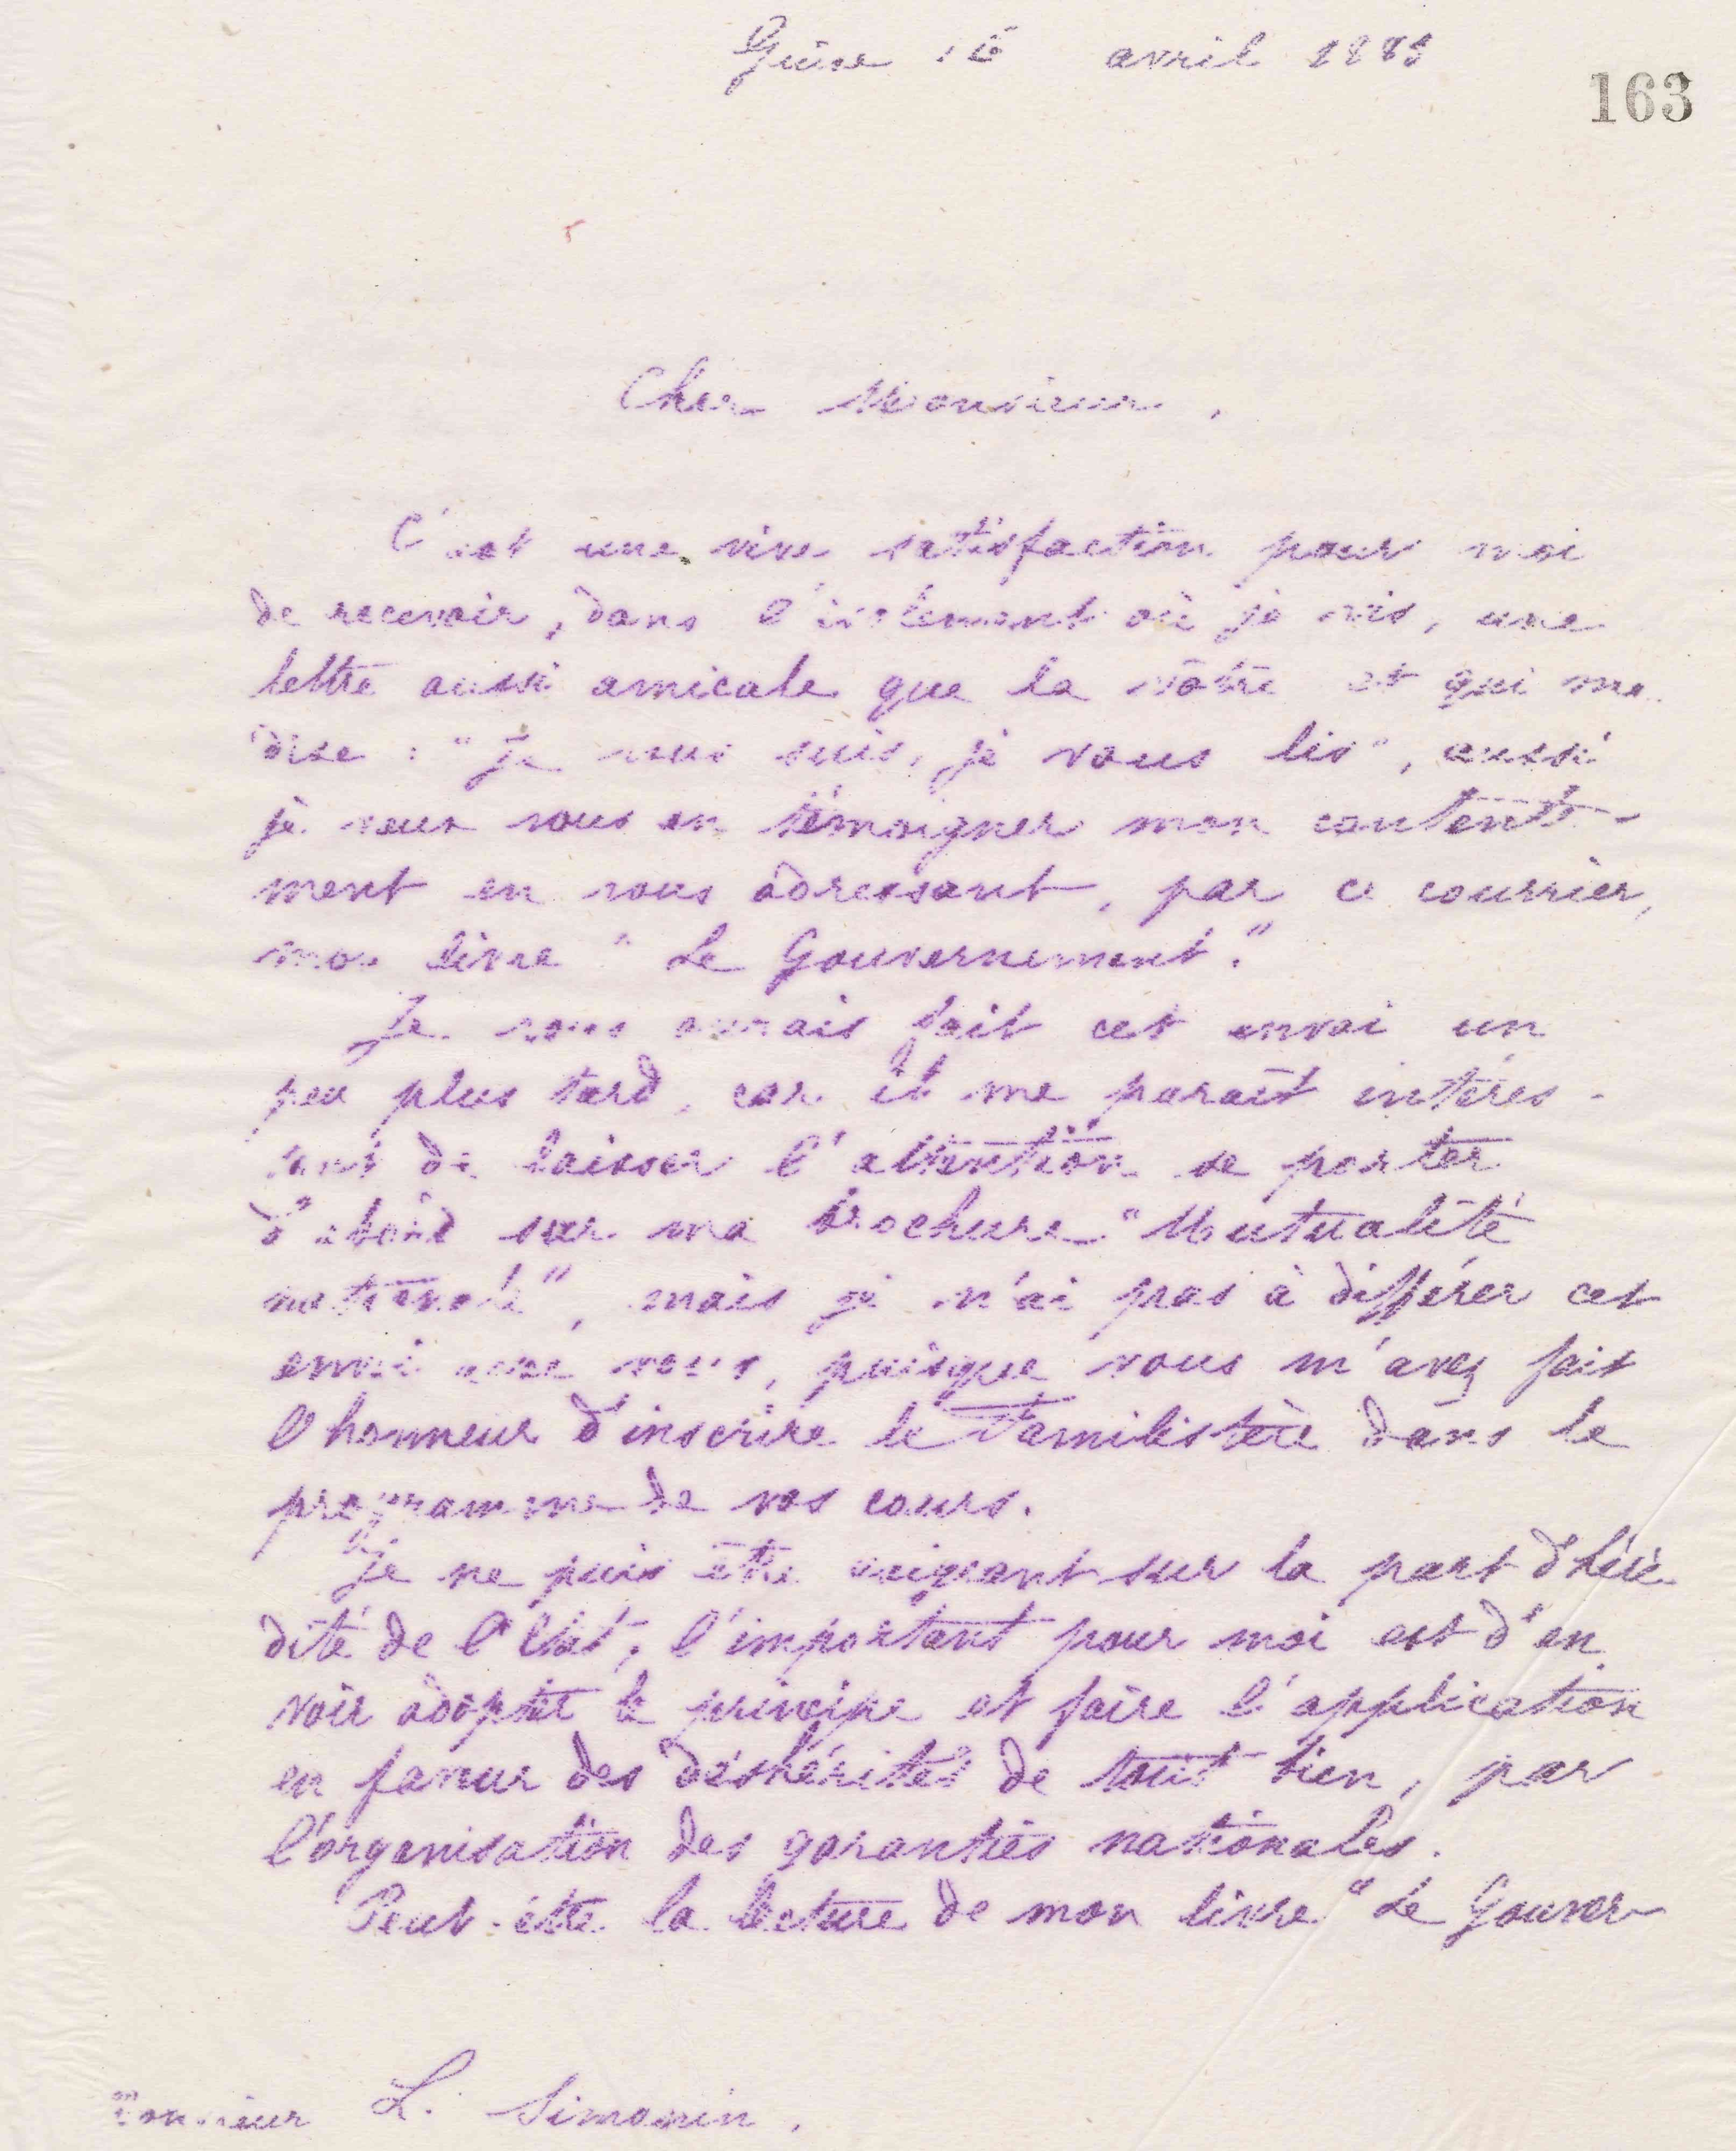 Guise 16 avril 1883
163
Cher Monsieur,
C'est une vive satisfaction pour moi
de recevoir, dans l'isolement où je vis, une
lettre aussi amicale que la vôtre et qui me
dise : "Je vous suis, je vous lis", aussi
je veux vous en témoigner mon contente-
ment en vous adressant, par ce courrier,
mon livre "Le Gouvernement".
Je vous aurais fait cet envoi un
peu plus tard, car il me paraît intéres-
sant de laisser l'attention se porter
d'abord sur ma brochure "Mutualité
nationale", mais je n'ai pas à différer cet
envoi avec vous, puisque vous m'avez fait
l'honneur d'inscrire le Familistère dans le
programme de vos cours.
Je ne puis être exigeant sur la part d'héré-
dité de l'Etat; l'important pour moi est d'en
voir adopter le principe et faire l'application
en faveur des déshérités de tout bien, par
l'organisation des garanties nationales.
Peut-être la lecture de mon livre "Le Gouver-
Monsieur L. Simonin,